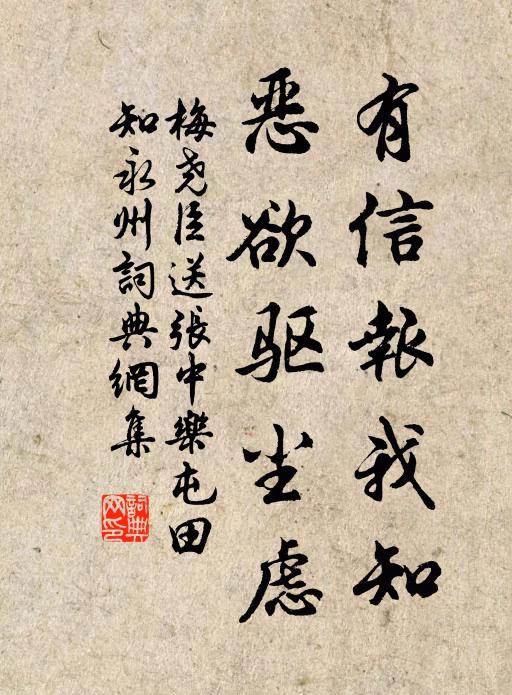 有信报我知
恶欲驱尘虑
梅尧臣送張中樂屯田
知永州詞典網集
詞典
网印